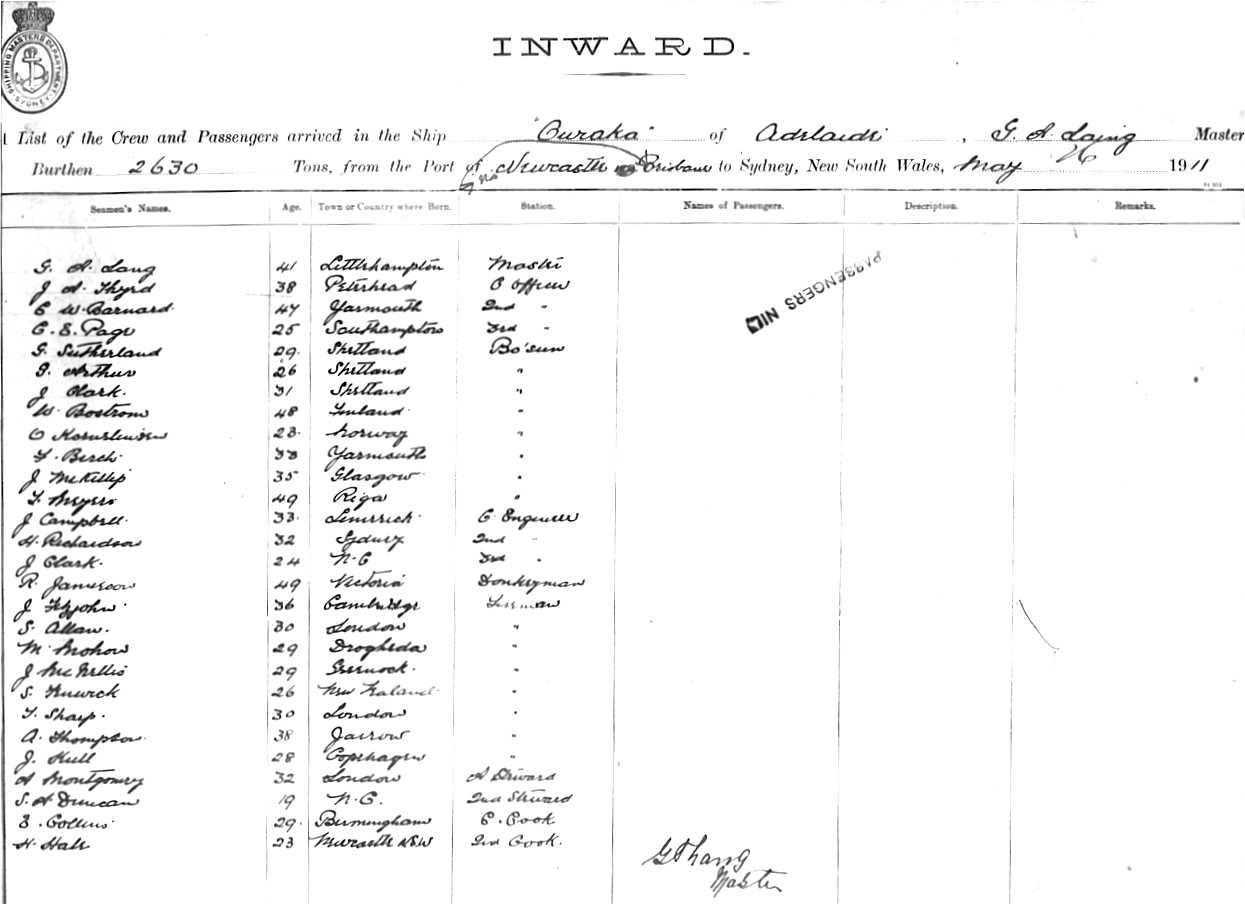 SHIPPING MASTERS DEPARTMENT SYDNEY
INWARD.
List of the Crew and Passengers arrived in the Ship "Ouraka" of Adelaide, G. A. Laing Master
Burthen 2630 Tons, from the Port of Newcastle Brisbane to Sydney, New South Wales, May 26 1911
Seamen's Names. Age. Town or Country where Born. Station. Names of Passengers. Description. Remarks.
PASSENGERS IN
G. A. Lang 41 Littlehampton Master
J A. Thyrd 38 Peterhead C Officer
C W. Barnard. 47 Yarmouth 2nd "
C. E. Page 25 Southampton 3rd "
G. Sutherland 29. Shetland Bo'sun
G. Arthur 26 Shetland "
J Clark. 31 Shetland "
W. Bostrom 48 Finland "
O 23. Norway "
F. Birch 33 Yarmouth "
J McKillip 35 Glasgow "
F. Meyers 49 Riga "
J Campbell. 33. Limerick C Engineer
H. Richardson 32 Sydney 2nd "
J Clark. 24 N.C 3rd "
R. Jamieson 49 Victoria Donkeyman
J Fitzjohn 36 Cambridge Fireman
S. Allan. 30 London "
M. Mohow 29 Drogheda "
J McNellis 29 Greenock. "
S. Fenwick 26 New Zealand. "
F. Sharp. 30 London "
A. Thompson. 38 Jarrow "
J. Hull 28 Copenhagen "
A Montgomery 32 London A Steward
S. A Duncan 19 N.C. 2nd Steward
E. Collins 29. Birmingham C. Cook
H. Hall 23 Newcastle NSW 2nd Cook.
Master